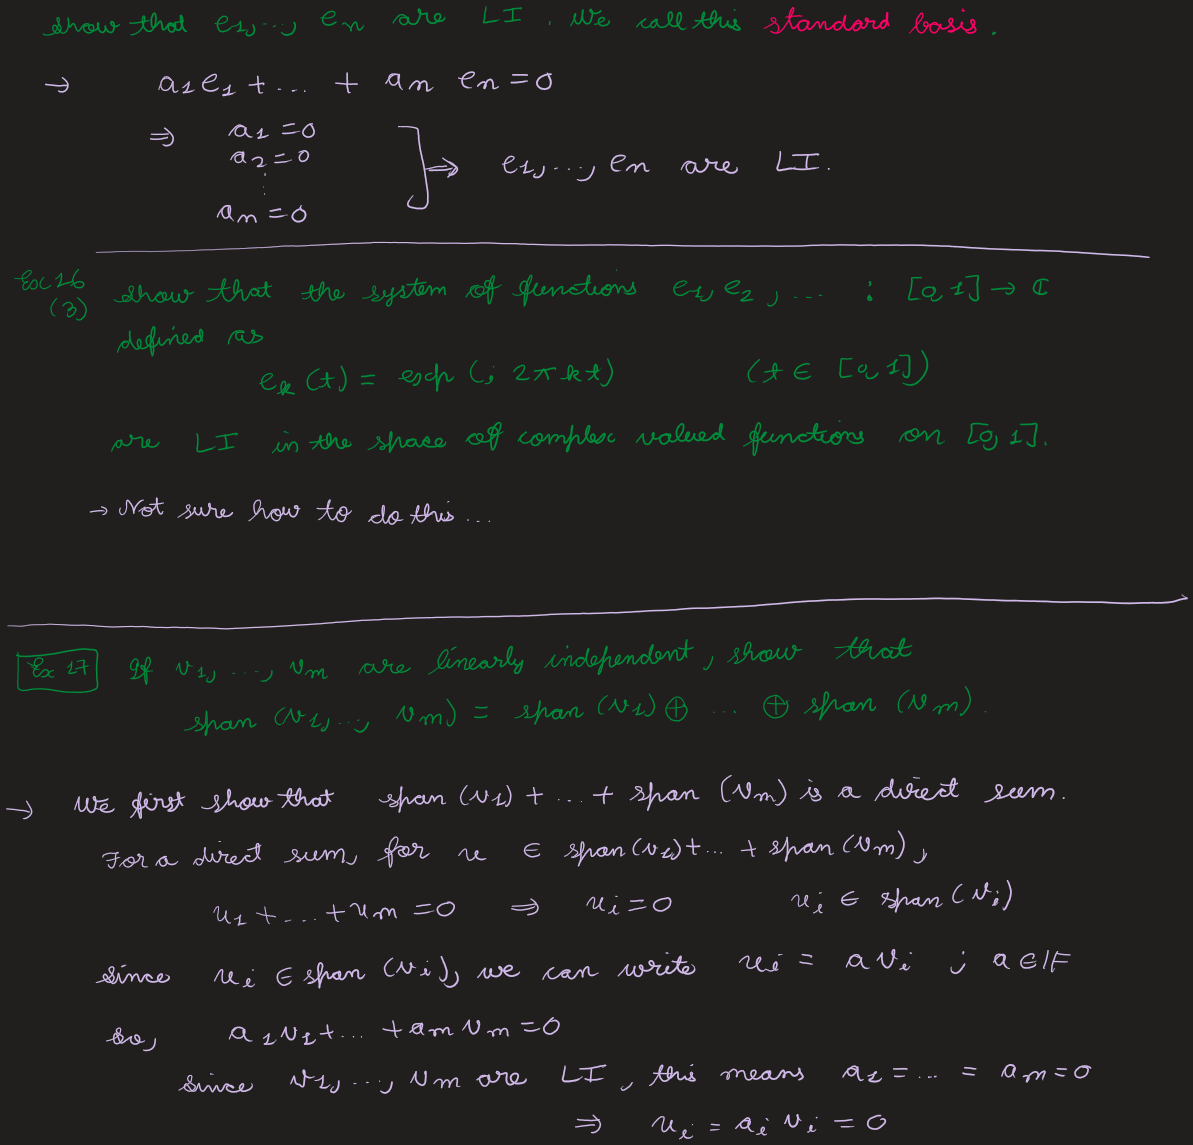 show that e₁, ..., eₙ are LI. We call this standard basis.
→ a₁e₁ + ... + aₙ eₙ = 0
⇒ a₁ = 0
a₂ = 0
⋮
aₙ = 0
⇒ e₁, ..., eₙ are LI.
Exc 16 show that the system of functions e₁, e₂, ... : [0, 1] → ℂ
(3)
defined as
eₖ(t) = exp(i 2πkt) (t ∈ [0, 1])
are LI in the space of complex valued functions on [0, 1].
→ Not sure how to do this ...
Ex 17 If v₁, ..., vₘ are linearly independent, show that
span (v₁, ..., vₘ) = span (v₁) ⊕ ... ⊕ span (vₘ).
→ We first show that span (v₁) + ... + span (vₘ) is a direct sum.
For a direct sum, for u ∈ span(v₁) + ... + span(vₘ),
u₁ + ... + uₘ = 0 ⇒ uᵢ = 0 uᵢ ∈ span (vᵢ)
since uᵢ ∈ span (vᵢ), we can write uᵢ = a vᵢ ; a ∈ 𝔽
So, a₁v₁ + ... + aₘvₘ = 0
since v₁, ..., vₘ are LI, this means a₁ = ... = aₘ = 0
⇒ uᵢ = aᵢ vᵢ = 0